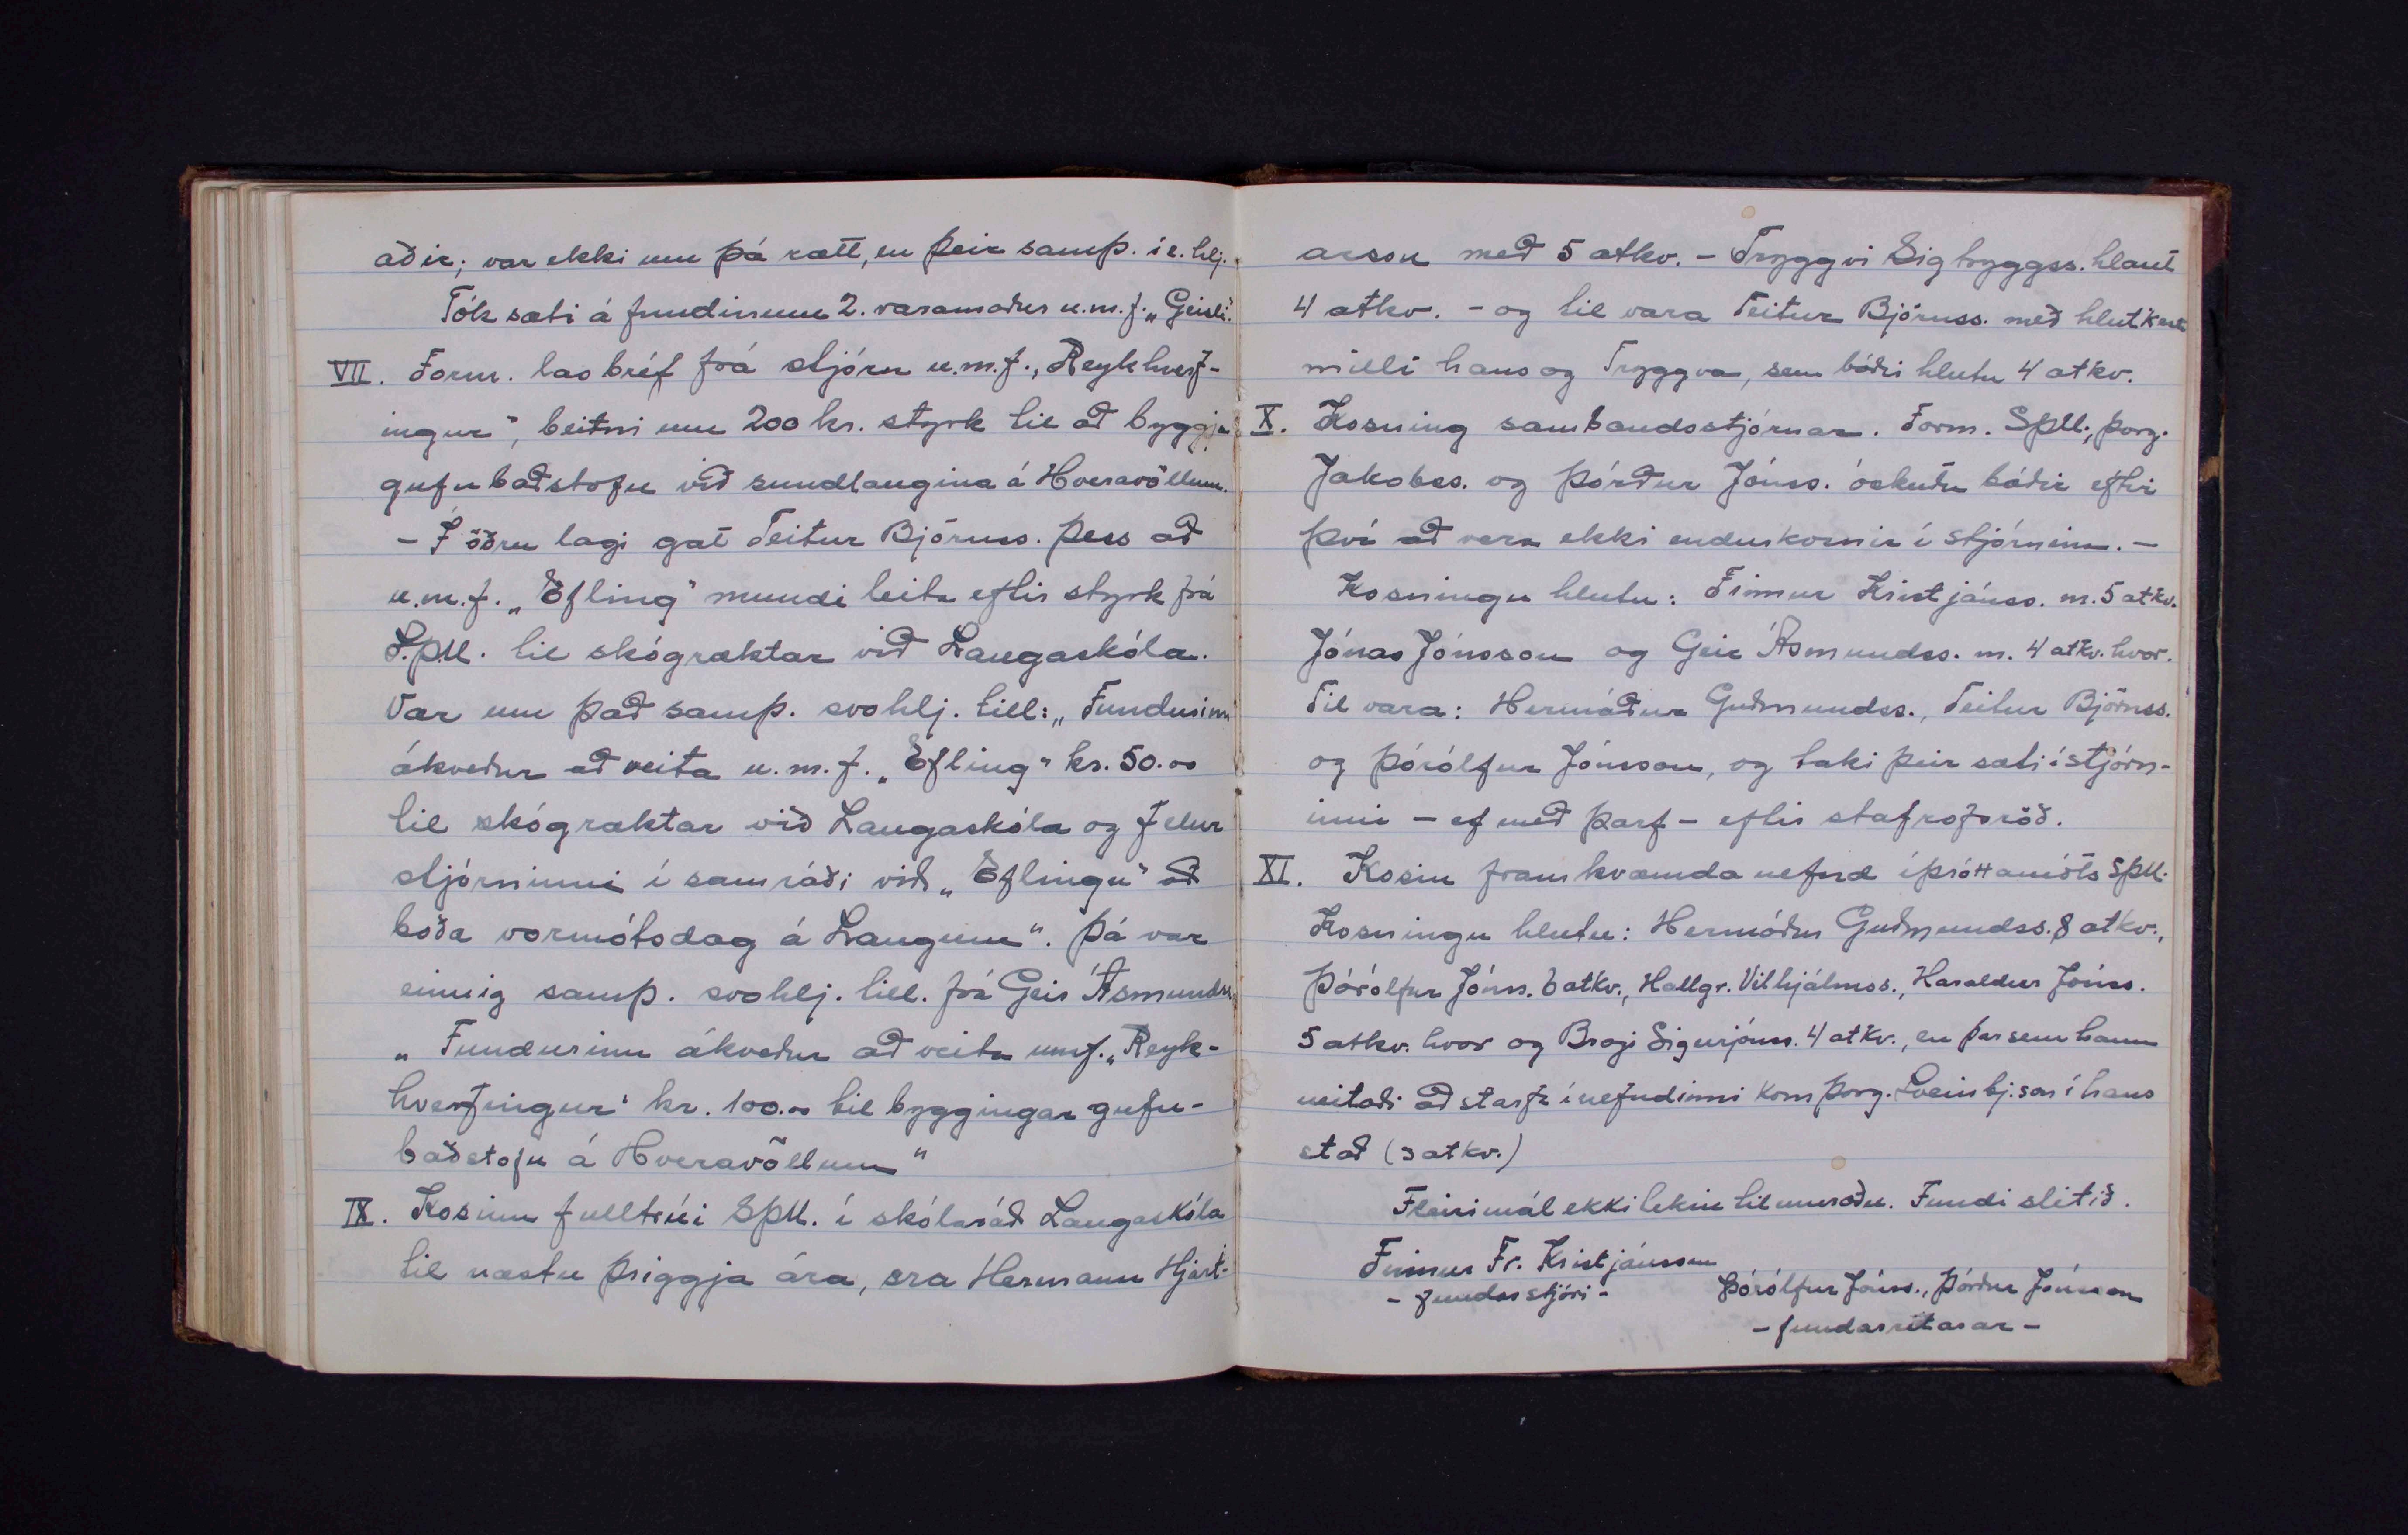 aðir; var ekki um þá rætt, en þeir samþ. í e. hlj.
Tók sæti á fundinum 2. varamaður u.m.f. „Geisli".
VII. Form. las bréf frá stjórn u.m.f. „Reykhverf-
ingur", beitni um 200 kr. styrk til að byggja
gufubaðstofu við sundlaugina á Hveravöllum.
- Í öðru lagi gat Teitur Björnss. þess að
u.m.f. „Efling" mundi leita eftir styrk frá
S.þ.U. til skógræktar við Laugaskóla.
Var um það samþ. svohlj. till: „Fundurinn
ákveður að veita u.m.f. „Efling" kr. 50.00
til skógræktar við Laugaskóla og felur
stjórninni í samráði við „Eflingu" að
boða vormótsdag á Laugum". Þá var
einnig samþ. svohlj. till. frá Geir Ásmundss.
„Fundurinn ákveður að veita umf. „Reyk-
hverfingur" kr. 100.00 til byggingar gufu-
baðstofu á Hveravöllum"
IX. Kosinn fulltrúi SþU. í skólaráð Laugaskóla
til næstu þriggja ára, sra Hermann Hjart-
arson með 5 atkv. - Tryggvi Sigtryggss. hlaut
4 atkv. - og til vara Teitur Björnss. með hlutkesti
milli hans og Tryggva, sem báðir hlutu 4 atkv.
X. Kosning sambandsstjórnar. Form. SþU., Þorg.
Jakobss. og Þórður Jónss. óskuðu báðir eftir
því að vera ekki endurkosnir í stjórninn. -
Kosningu hlutu: Finnur Kristjánss. m. 5 atkv.
Jónas Jónsson og Geir Ásmundss. m. 4 atkv. hvor.
Til vara: Hermóður Guðmundss., Teitur Björnss.
og Þórólfur Jónsson, og taki þeir sæti í stjórn-
inni - ef með þarf - eftir stafrófsröð.
XI. Kosin framkvæmdanefnd íþróttamóts SþU.
Kosningu hlutu: Hermóður Guðmundss. 8 atkv.,
Þórólfur Jónss. 6 atkv., Hallgr. Vilhjálmss., Haraldur Jónss.
5 atkv. hvor og Bragi Sigurjónss. 4 atkv., en þar sem hann
neitaði að starfa í nefndinni kom Þorg. Sveinbj.son í hans
stað (3 atkv.)
Fleiri mál ekki tekin til umræðu. Fundi slitið.
Finnur Fr. Kristjánsson
- fundarstjóri -
Þórólfur Jónss., Þórður Jónsson
- fundarritarar -